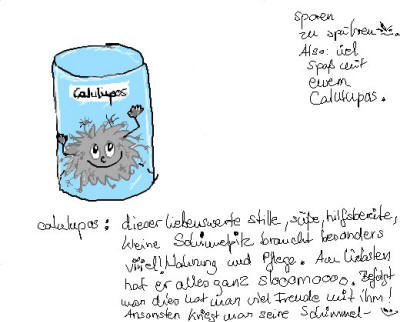 Calulupos
calulupos: dieser liebenswerte stille, süße, hilfsbereite,
kleine Schimmelpilz braucht besonders
viiiel! Nahrung und Pflege. Am liebsten
hat er alles ganz slooomoooo. Befolgt
man dies hat man viel Freude mit ihm!
Ansonsten kriegt man seine Schimmel-
sporen
zu spühren
Also: viel
Spaß mit
eurem
Calulupos.